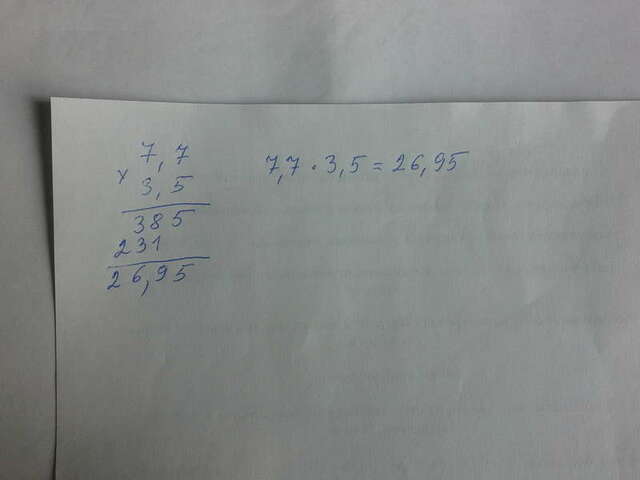 7,7
× 3,5
385
231
26,95
7,7 · 3,5 = 26,95